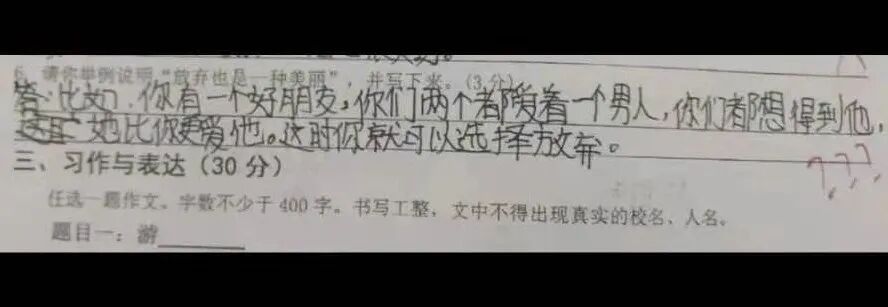 6. 请你举例说明“放弃也是一种美丽”,并写下来。(3分)
答:比如,你有一个好朋友,你们两个都爱着一个男人,你们都想得到他,
她比你更爱他。这时你就可以选择放弃。
三、习作与表达(30分)
任选一题作文。字数不少于400字。书写工整,文中不得出现真实的校名、人名。
题目一:游
???